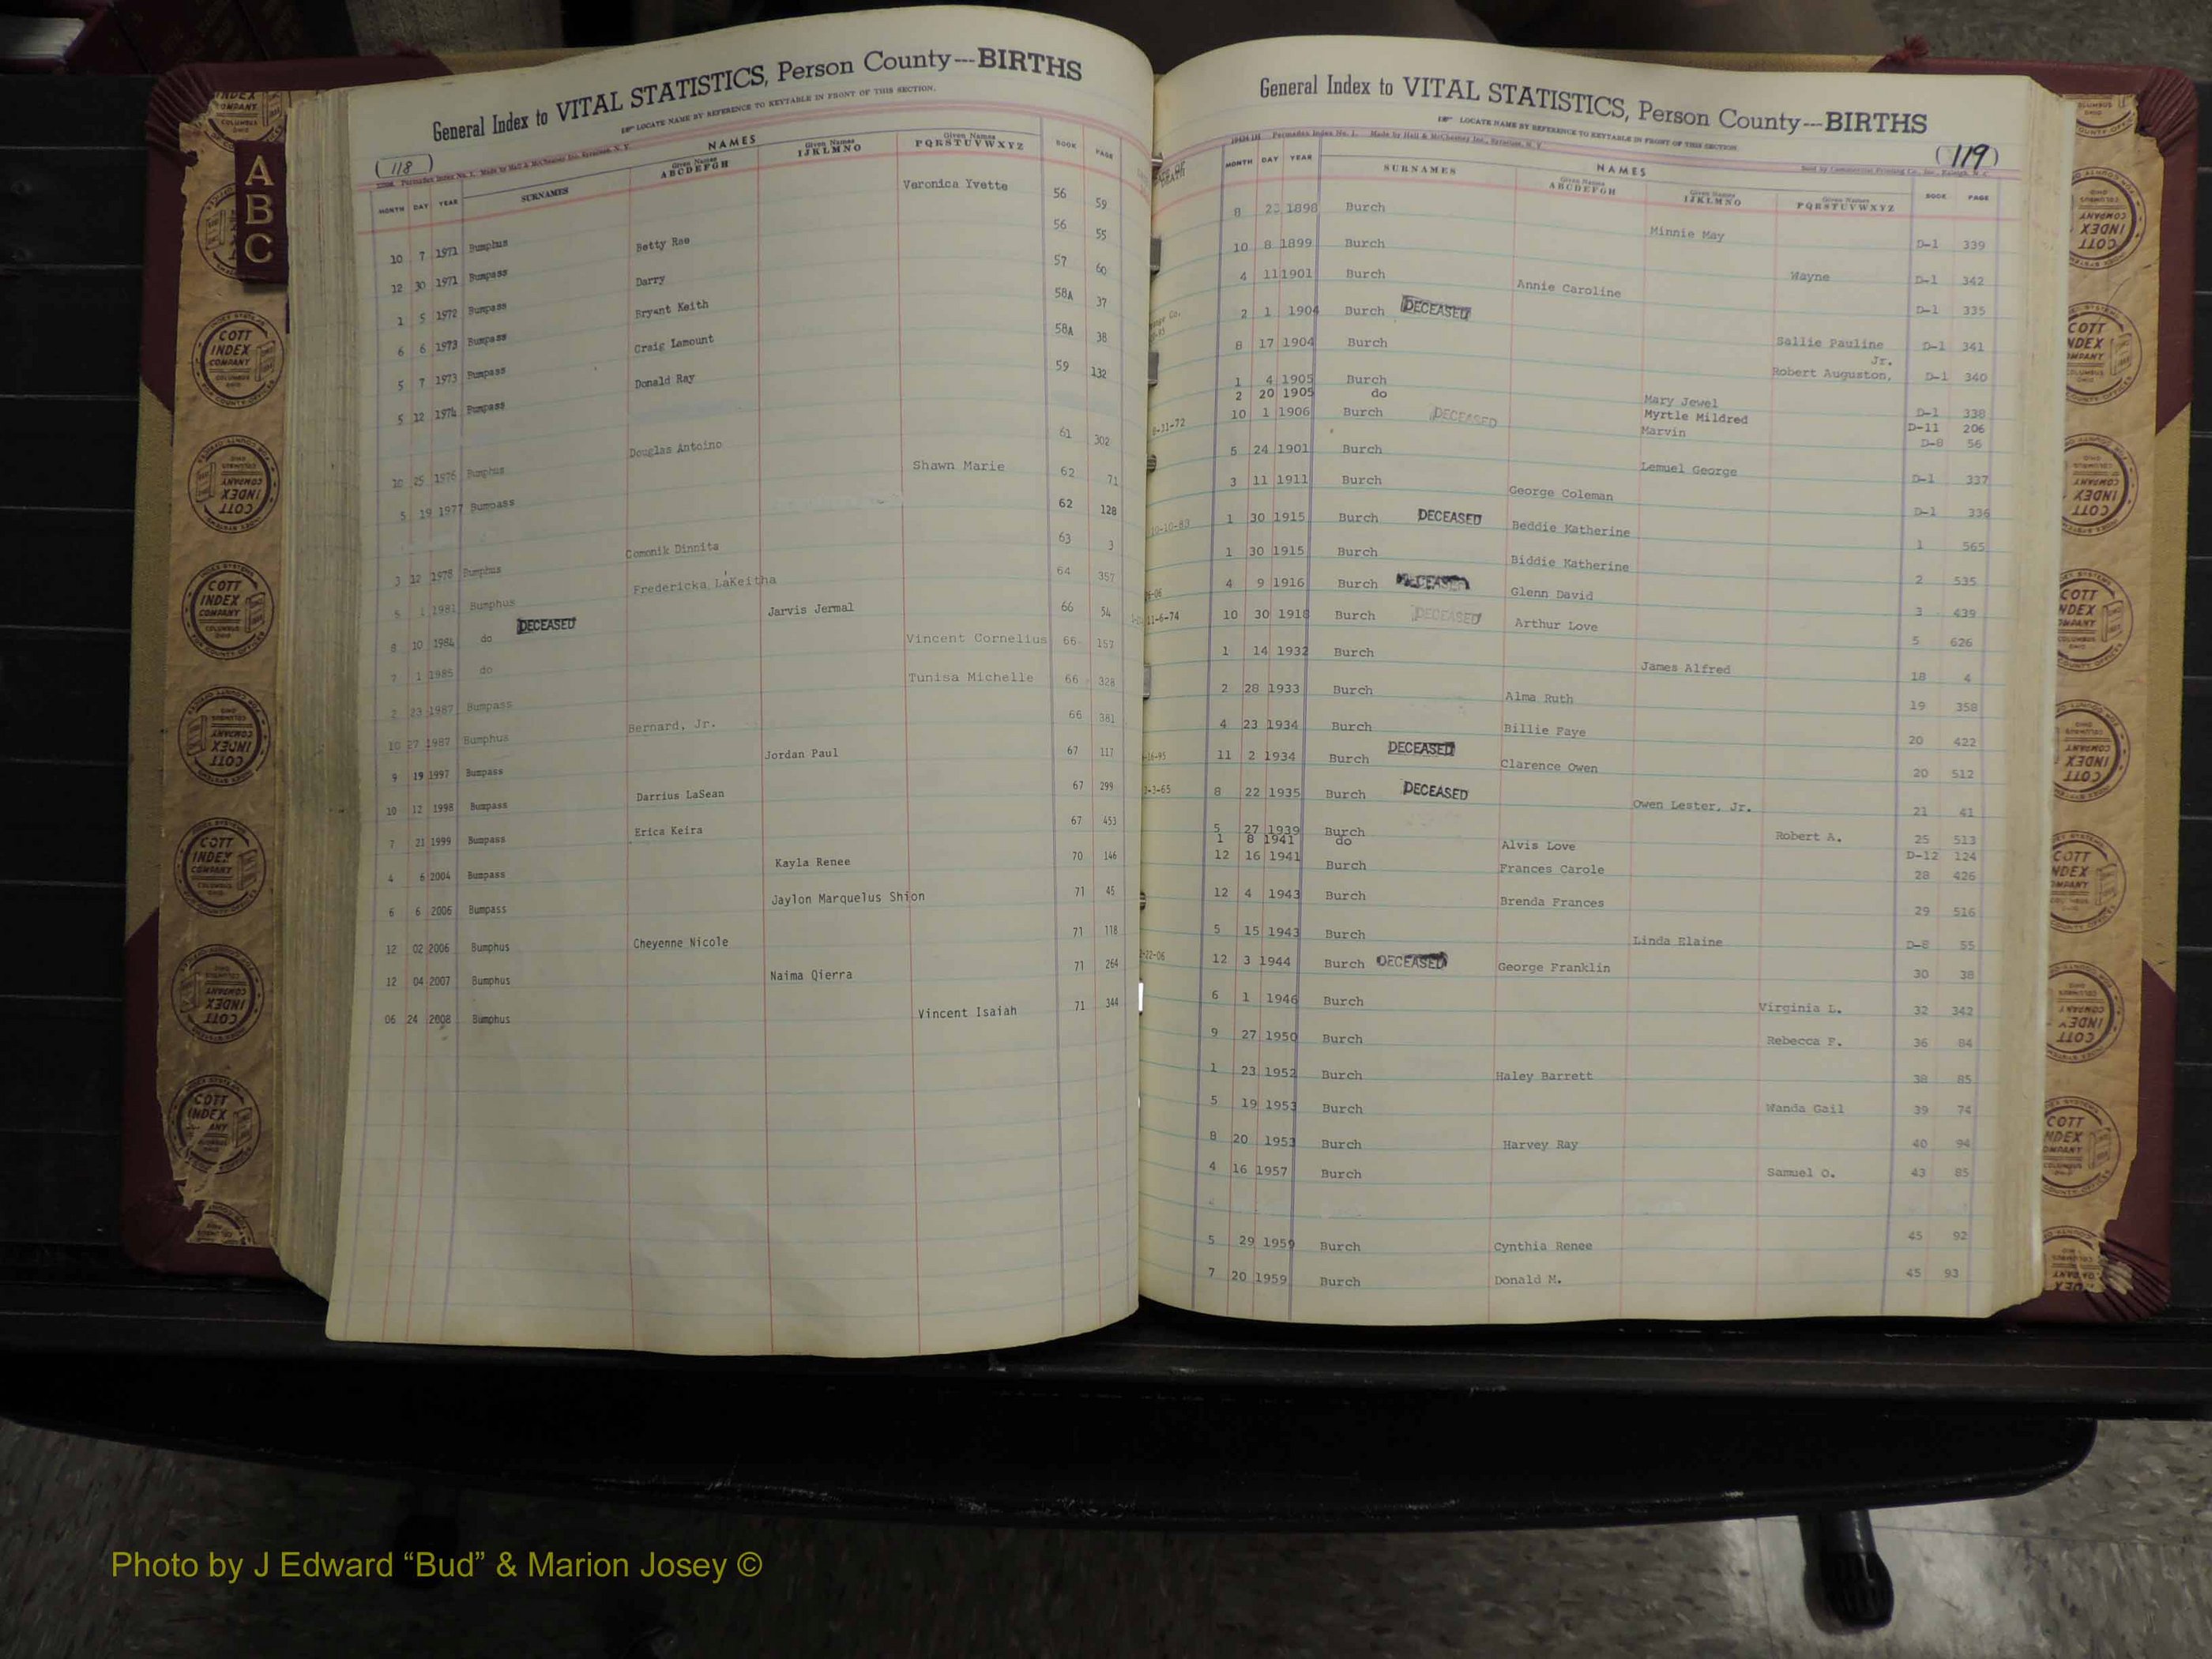 General Index to VITAL STATISTICS, Person County---BIRTHS
LOCATE NAME BY REFERENCE TO KEYTABLE IN FRONT OF THIS SECTION.
(118)
NAMES
MONTH DAY YEAR SURNAMES Given Names ABCDEFGH Given Names IJKLMNO Given Names PQRSTUVWXYZ BOOK PAGE
10 7 1971 Bumphus Veronica Yvette 56 59
12 30 1971 Bumpass Betty Rae 56 55
1 5 1972 Bumpass Darry 57 60
6 6 1973 Bumpass Bryant Keith 58A 37
5 7 1973 Bumpass Craig Lamount 58A 38
5 12 1974 Bumpass Donald Ray 59 132
10 25 1976 Bumphus Douglas Antoino 61 302
5 19 1977 Bumpass Shawn Marie 62 71
62 128
3 12 1978 Bumphus Domonik Dinnita 63 3
5 1 1981 Bumphus Fredericka LaKeitha 64 357
8 10 1984 do DECEASED Jarvis Jermal 66 54
7 1 1985 do Vincent Cornelius 66 157
2 23 1987 Bumpass Tunisa Michelle 66 328
10 27 1987 Bumphus Bernard, Jr. 66 381
9 19 1997 Bumpass Jordan Paul 67 117
10 12 1998 Bumpass Darrius LaSean 67 299
7 21 1999 Bumpass Erica Keira 67 453
4 6 2004 Bumpass Kayla Renee 70 146
6 6 2006 Bumpass Jaylon Marquelus Shion 71 45
12 02 2006 Bumphus Cheyenne Nicole 71 118
12 04 2007 Bumphus Naima Qierra 71 264
06 24 2008 Bumphus Vincent Isaiah 71 344
General Index to VITAL STATISTICS, Person County---BIRTHS
LOCATE NAME BY REFERENCE TO KEYTABLE IN FRONT OF THIS SECTION.
(119)
Permadex Index No. 1. Made by Hall & McChesney Inc., Syracuse, N. Y.
Sold by Commercial Printing Co., Inc., Raleigh, N. C.
NAMES
MONTH DAY YEAR SURNAMES Given Names ABCDEFGH Given Names IJKLMNO Given Names PQRSTUVWXYZ BOOK PAGE
8 23 1898 Burch Minnie May D-1 339
10 8 1899 Burch Wayne D-1 342
4 11 1901 Burch Annie Caroline D-1 335
2 1 1904 Burch DECEASED Sallie Pauline D-1 341
8 17 1904 Burch Robert Auguston, Jr. D-1 340
1 4 1905 Burch Mary Jewel D-1 338
2 20 1905 do Myrtle Mildred D-11 206
8-31-72 10 1 1906 Burch DECEASED Marvin D-8 56
5 24 1901 Burch Lemuel George D-1 337
3 11 1911 Burch George Coleman D-1 336
10-10-83 1 30 1915 Burch DECEASED Beddie Katherine 1 565
1 30 1915 Burch Biddie Katherine 2 535
4 9 1916 Burch DECEASED Glenn David 3 439
11-6-74 10 30 1918 Burch DECEASED Arthur Love 5 626
1 14 1932 Burch James Alfred 18 4
2 28 1933 Burch Alma Ruth 19 358
4 23 1934 Burch Billie Faye 20 422
11 2 1934 Burch DECEASED Clarence Owen 20 512
8 22 1935 Burch DECEASED Owen Lester, Jr. 21 41
5 27 1939 Burch Robert A. 25 513
1 8 1941 do Alvis Love D-12 124
12 16 1941 Burch Frances Carole 28 426
12 4 1943 Burch Brenda Frances 29 516
5 15 1943 Burch Linda Elaine D-8 55
12 3 1944 Burch DECEASED George Franklin 30 38
6 1 1946 Burch Virginia L. 32 342
9 27 1950 Burch Rebecca F. 36 84
1 23 1952 Burch Haley Barrett 38 85
5 19 1953 Burch Wanda Gail 39 74
8 20 1953 Burch Harvey Ray 40 94
4 16 1957 Burch Samuel O. 43 85
5 29 1959 Burch Cynthia Renee 45 92
7 20 1959 Burch Donald M. 45 93
A
B
C
COTT INDEX COMPANY COLUMBUS OHIO
Photo by J Edward “Bud” & Marion Josey ©